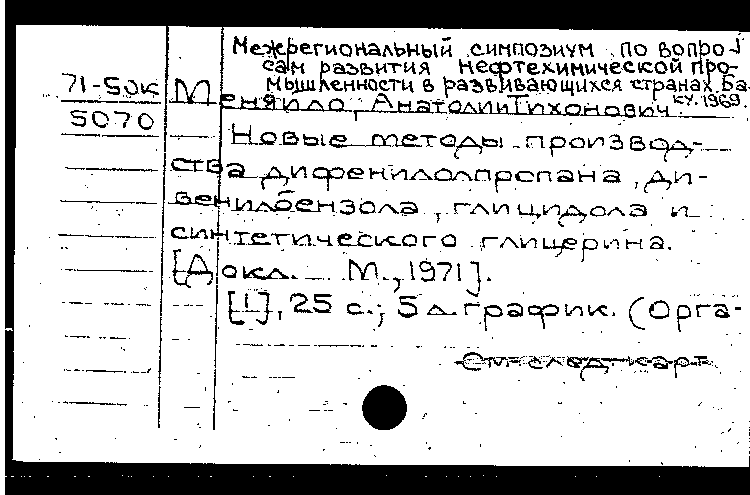 Межрегиональный симпозиум по вопро-
сам развития нефтехимической про-
мышленности в развивающихся странах. Ба-
ку. 1969.
71-50К
5070
Меняйло, Анатолий Тихонович
Новые методы производ-
ства дифенилолпропана, ди-
венилбензола, глицидола и
синтетического глицерина.
[Докл. М., 1971].
[1], 25 с.; 5 л. график. (Орга-
См. след. карт